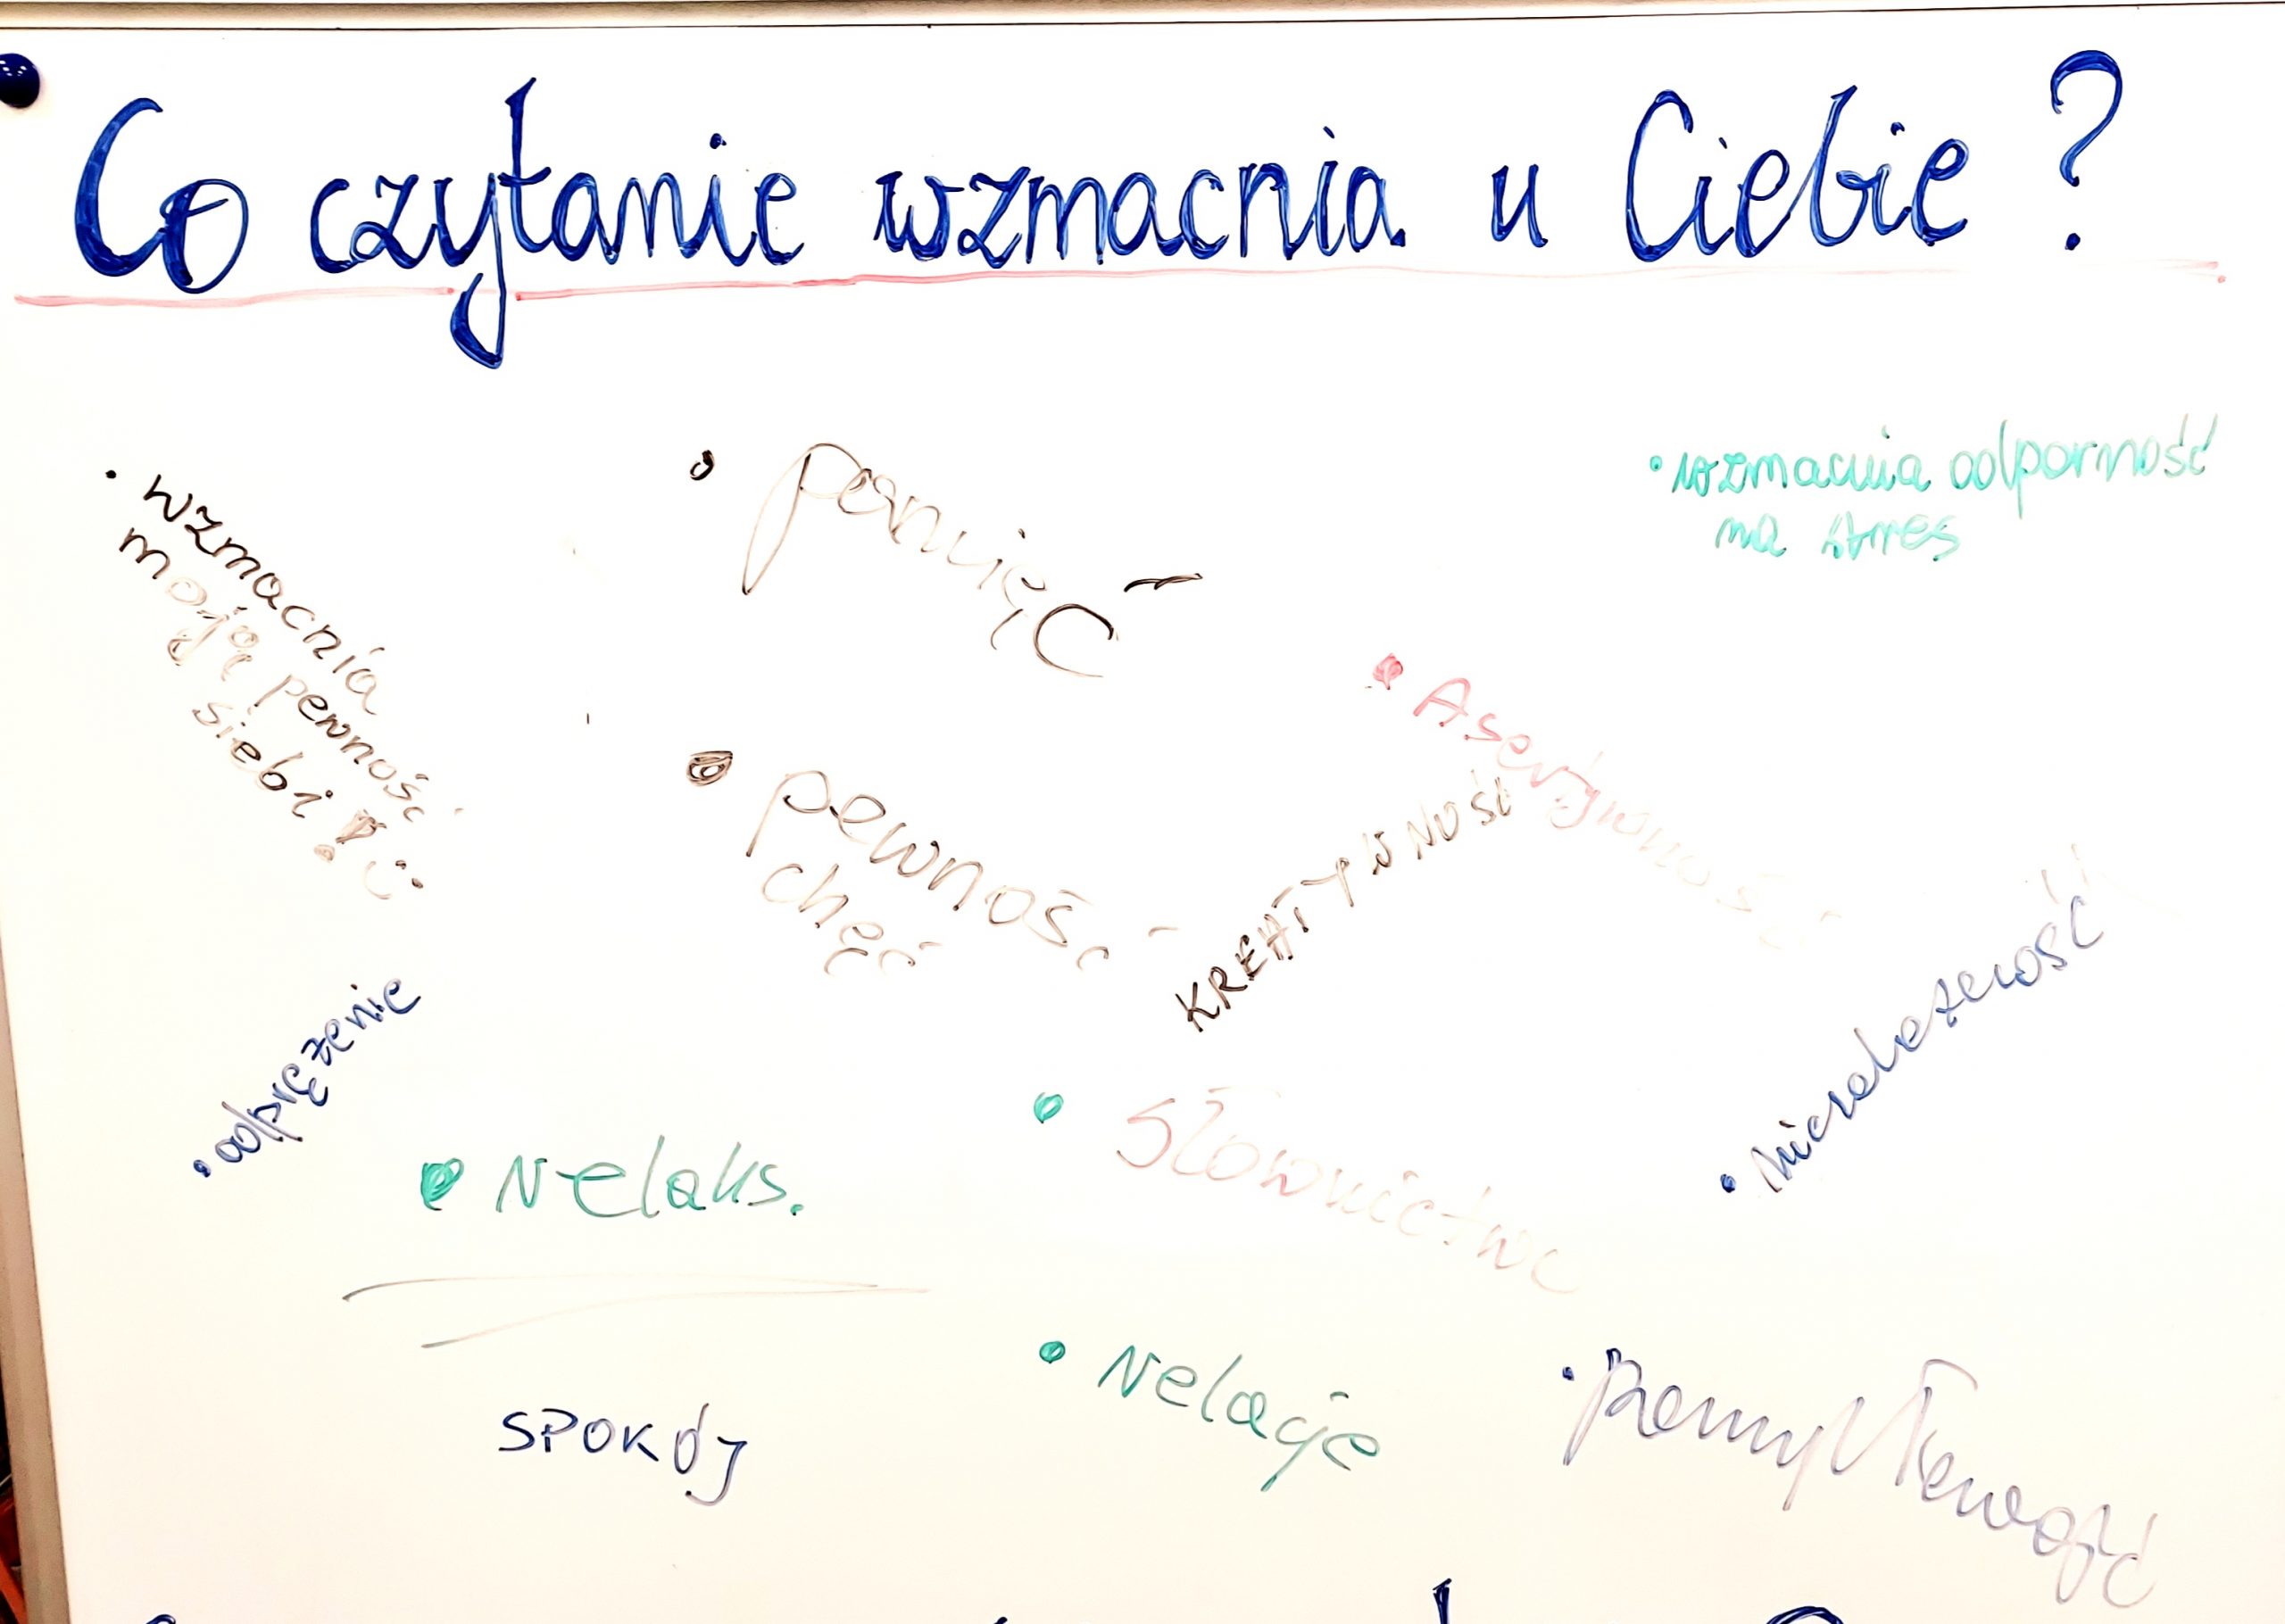 Co czytanie wzmacnia u Ciebie?
• wzmacnia
moją pewność
siebie! :)
• pamięć
• wzmacnia odporność
na stres
• Asertywność
• pewność
chęć
KREATYWNOŚĆ
• odprężenie
• relaks.
• słownictwo
• niezależność
SPOKÓJ
• relacje
• pomysłowość